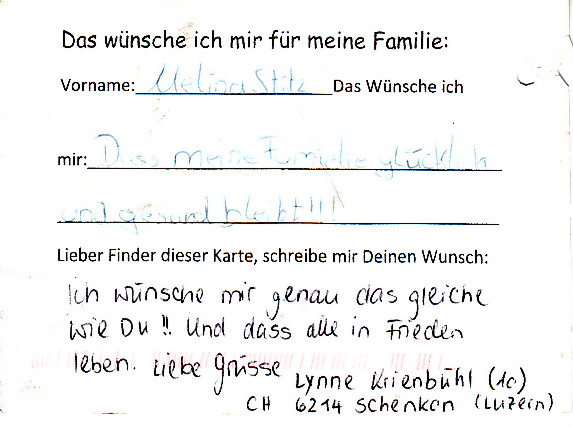 Das wünsche ich mir für meine Familie:
Vorname: Melina Stitz Das Wünsche ich
mir: Dass meine Familie glücklich
und gesund bleibt!!!
Lieber Finder dieser Karte, schreibe mir Deinen Wunsch:
Ich wünsche mir genau das gleiche
wie Du!! Und dass alle in Frieden
leben. Liebe Grüsse Lynne Krienbühl (10)
CH 6214 Schenkon (Luzern)